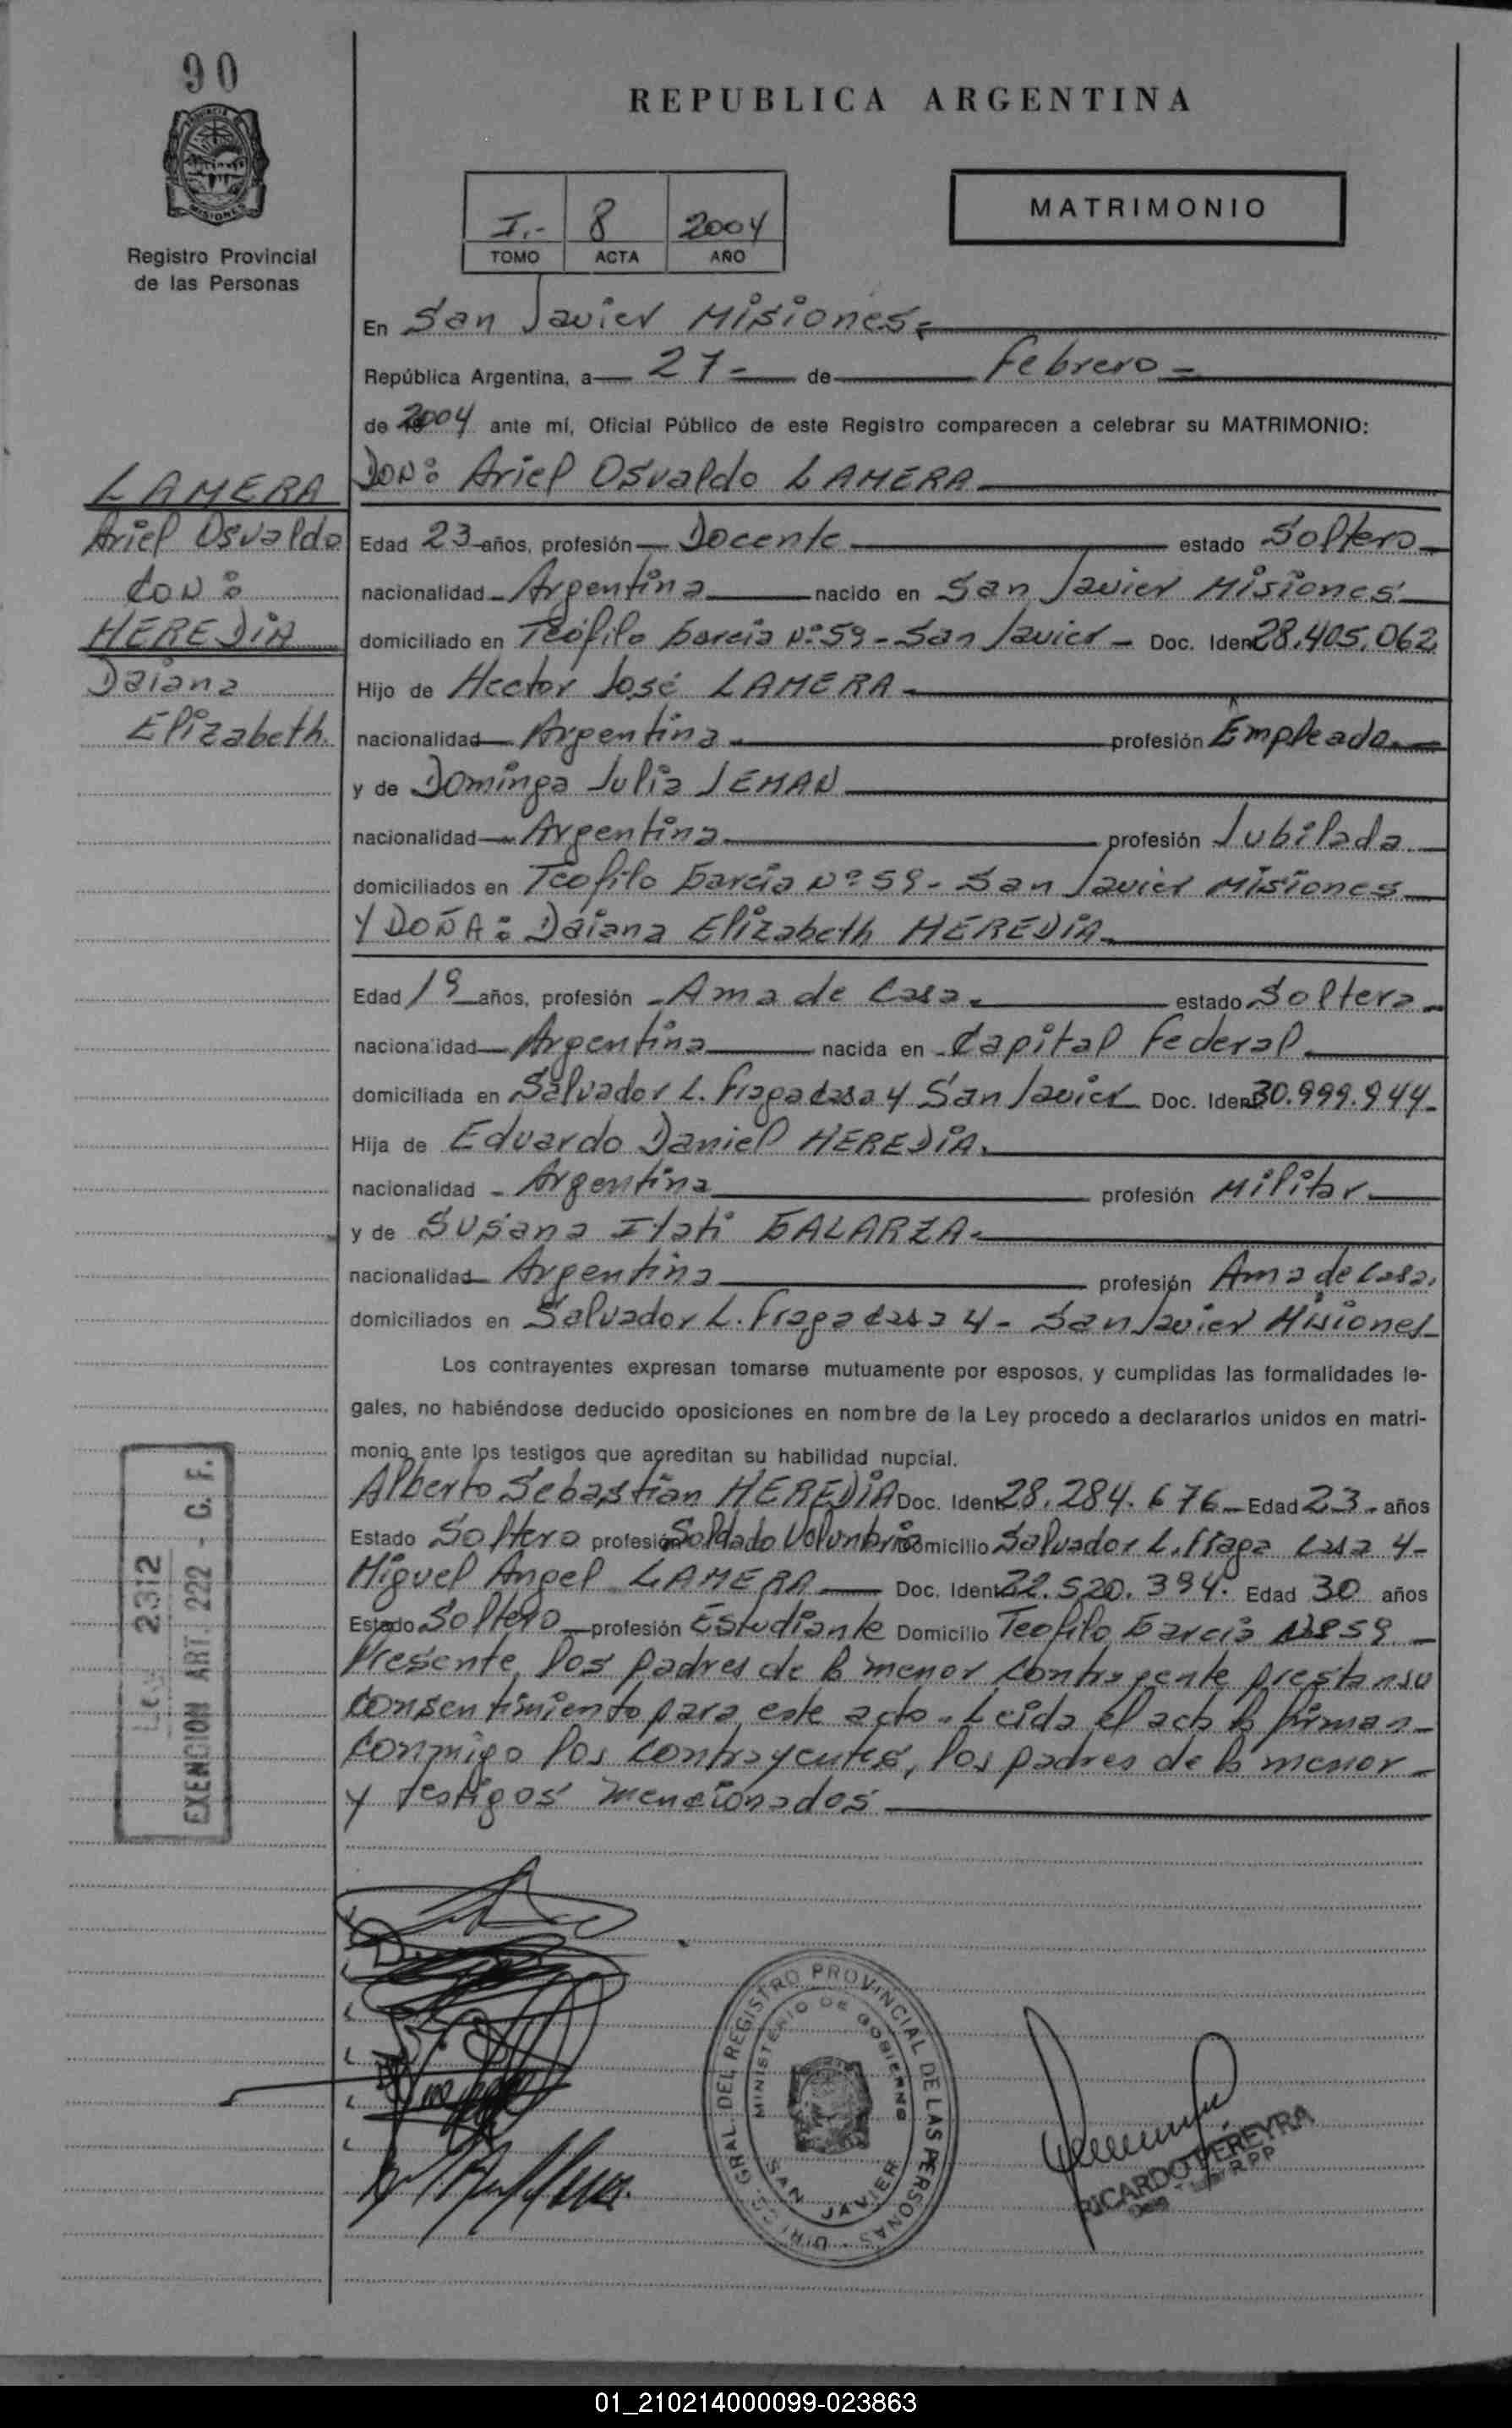 90
REPUBLICA ARGENTINA
MATRIMONIO
I.- 8 2004
TOMO ACTA AÑO
MISIONES
Registro Provincial
de las Personas
En San Javier Misiones.-
República Argentina, a 27- de Febrero-
de 2004 ante mí, Oficial Público de este Registro comparecen a celebrar su MATRIMONIO:
LAMERA
Ariel Osvaldo
con:
HEREDIA
Daiana
Elizabeth.
Don: Ariel Osvaldo LAMERA
Edad 23 años, profesión Docente estado Soltero
nacionalidad Argentina nacido en San Javier Misiones
domiciliado en Teófilo García Nº 59 - San Javier - Doc. Ident 28.405.062
Hijo de Hector José LAMERA
nacionalidad Argentina profesión Empleado.
y de Dominga Julia JEMAN
nacionalidad Argentina profesión Jubilada
domiciliados en Teofilo García Nº 59 - San Javier Misiones
Y DOÑA: Daiana Elizabeth HEREDIA
Edad 19 años, profesión Ama de Casa. estado Soltera
nacionalidad Argentina nacida en Capital Federal
domiciliada en Salvador L. Fraga casa 4 San Javier Doc. Ident 30.999.944-
Hija de Eduardo Daniel HEREDIA.
nacionalidad Argentina profesión Militar
y de Susana Itatí GALARZA.
nacionalidad Argentina profesión Ama de Casa.
domiciliados en Salvador L. Fraga casa 4 - San Javier Misiones
Los contrayentes expresan tomarse mutuamente por esposos, y cumplidas las formalidades le-
gales, no habiéndose deducido oposiciones en nombre de la Ley procedo a declararlos unidos en matri-
monio ante los testigos que acreditan su habilidad nupcial.
Alberto Sebastián HEREDIA Doc. Ident 28.284.676 Edad 23 años
Estado Soltero profesión Soldado Voluntario Domicilio Salvador L. Fraga casa 4-
Miguel Angel LAMERA Doc. Ident 22.520.394. Edad 30 años
Estado Soltero profesión Estudiante Domicilio Teofilo García Nº 59
Presente los padres de la menor contrayente prestan su
consentimiento para este acto. Leída el acta la firman
conmigo los contrayentes, los padres de la menor
y testigos mencionados
Ley 2312
EXENCION ART. 222 - C. F.
DIRECC. GRAL. DEL REGISTRO PROVINCIAL DE LAS PERSONAS
MINISTERIO DE GOBIERNO
SAN JAVIER
RICARDO PEREYRA
01_210214000099-023863